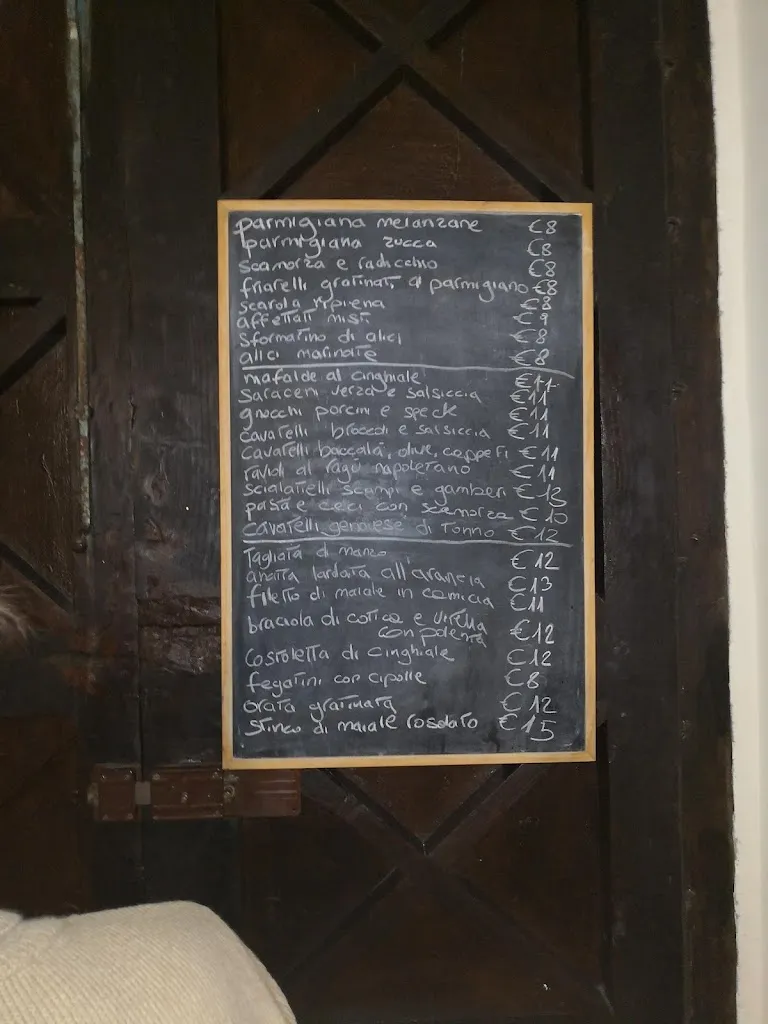 parmigiana melanzane €8
parmigiana zucca €8
scamorza e radicchio €8
friarelli gratinati al parmigiano €8
scarola ripiena €8
affettati misti €9
sformatino di alici €8
alici marinate €8
mafalde al cinghiale €11
saraceni verza e salsiccia €11
gnocchi porcini e speck €11
cavatelli broccoli e salsiccia €11
cavatelli baccalà, olive, capperi €11
ravioli al ragù napoletano €11
scialatielli scampi e gamberi €13
pasta e ceci con scamorza €10
cavatelli genovese di tonno €12
Tagliata di manzo €12
anatra lardata all'arancia €13
filetto di maiale in camicia €11
braciola di cotica e verza
con polenta €12
Costoletta di cinghiale €12
fegatini con cipolle €8
Orata gratinata €12
stinco di maiale rosolato €15